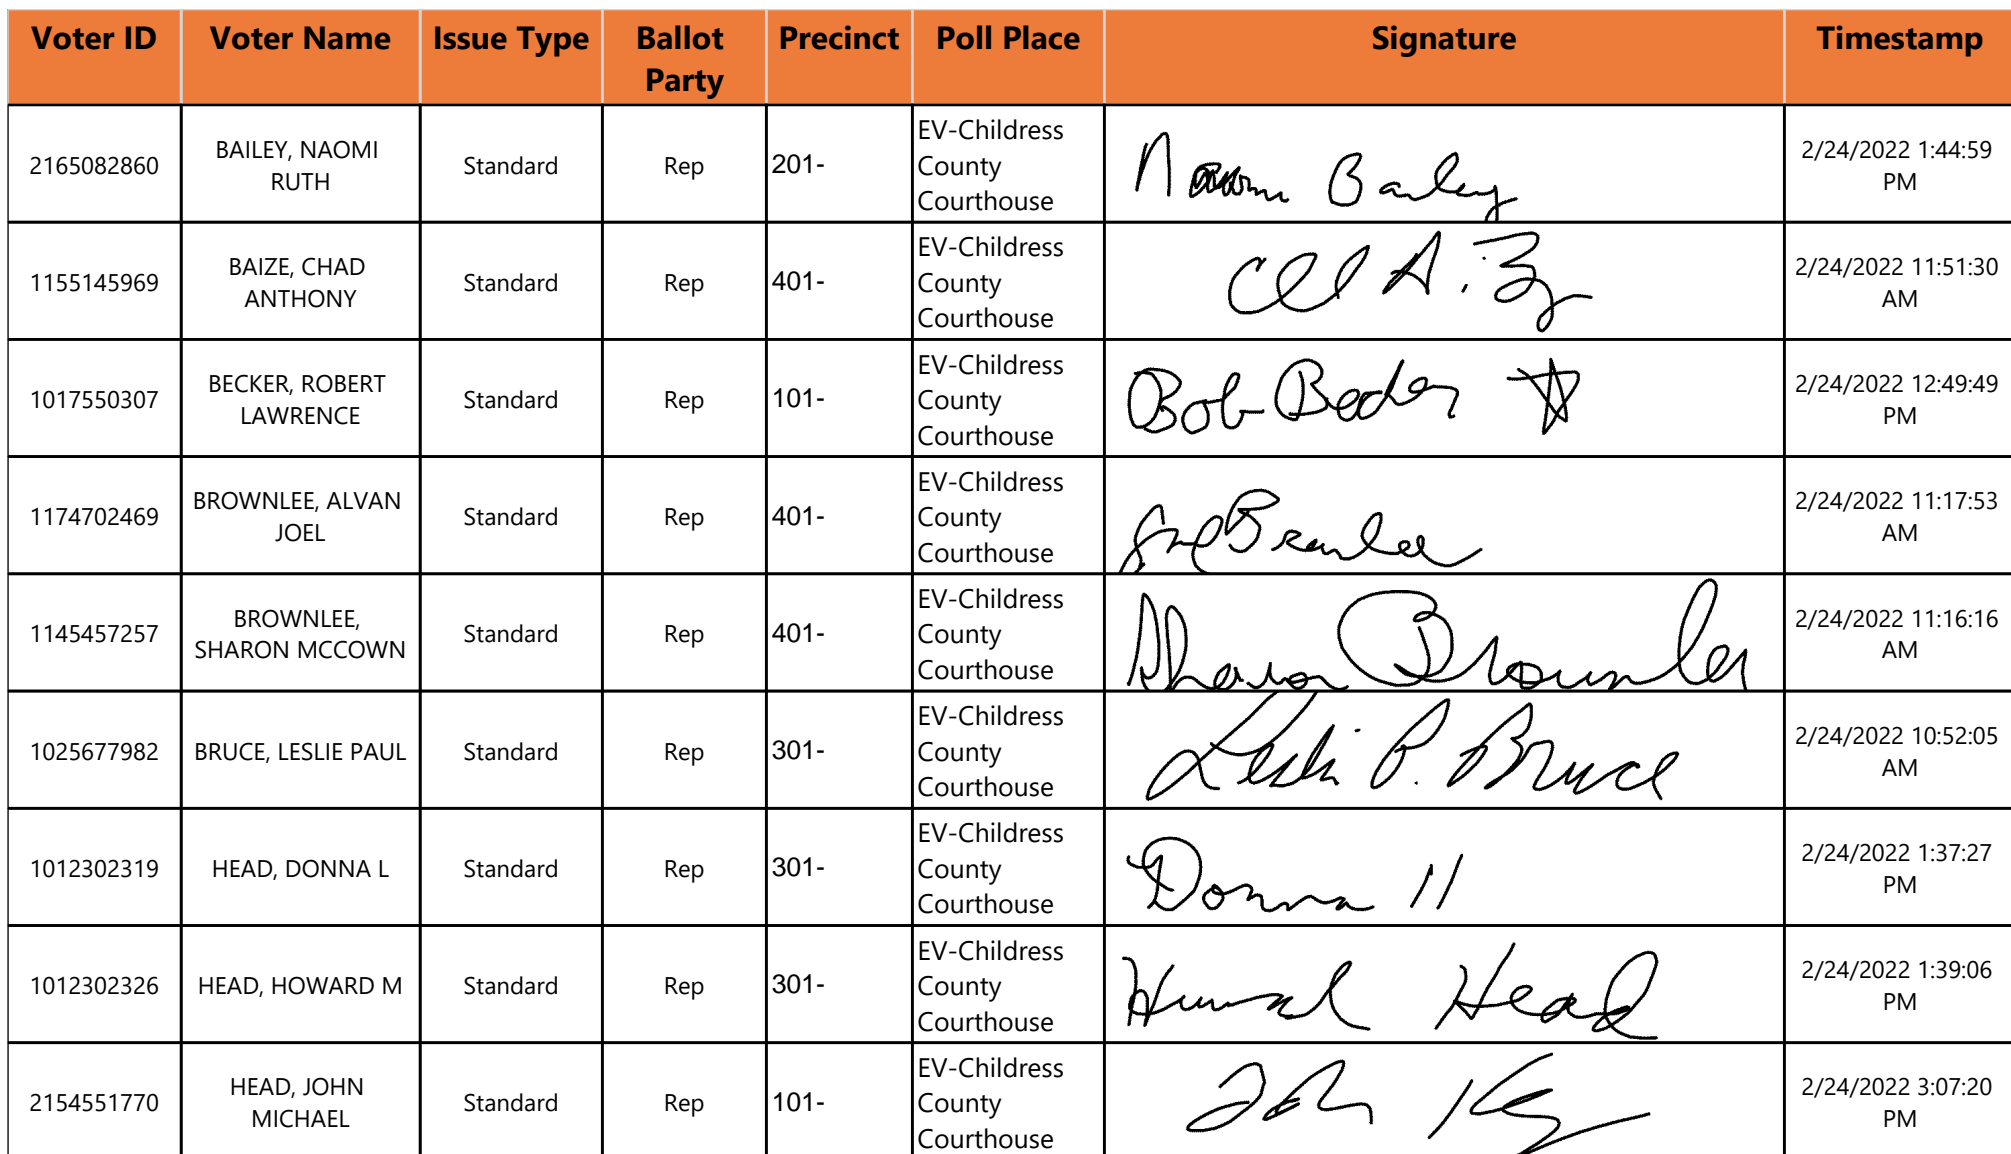 Voter ID Voter Name Issue Type Ballot Party Precinct Poll Place Signature Timestamp
2165082860 BAILEY, NAOMI RUTH Standard Rep 201- EV-Childress County Courthouse Naomi Bailey 2/24/2022 1:44:59 PM
1155145969 BAIZE, CHAD ANTHONY Standard Rep 401- EV-Childress County Courthouse 2/24/2022 11:51:30 AM
1017550307 BECKER, ROBERT LAWRENCE Standard Rep 101- EV-Childress County Courthouse Bob Becker 2/24/2022 12:49:49 PM
1174702469 BROWNLEE, ALVAN JOEL Standard Rep 401- EV-Childress County Courthouse 2/24/2022 11:17:53 AM
1145457257 BROWNLEE, SHARON MCCOWN Standard Rep 401- EV-Childress County Courthouse Sharon Brownlee 2/24/2022 11:16:16 AM
1025677982 BRUCE, LESLIE PAUL Standard Rep 301- EV-Childress County Courthouse Leslie P. Bruce 2/24/2022 10:52:05 AM
1012302319 HEAD, DONNA L Standard Rep 301- EV-Childress County Courthouse Donna 2/24/2022 1:37:27 PM
1012302326 HEAD, HOWARD M Standard Rep 301- EV-Childress County Courthouse Howard Head 2/24/2022 1:39:06 PM
2154551770 HEAD, JOHN MICHAEL Standard Rep 101- EV-Childress County Courthouse John 2/24/2022 3:07:20 PM